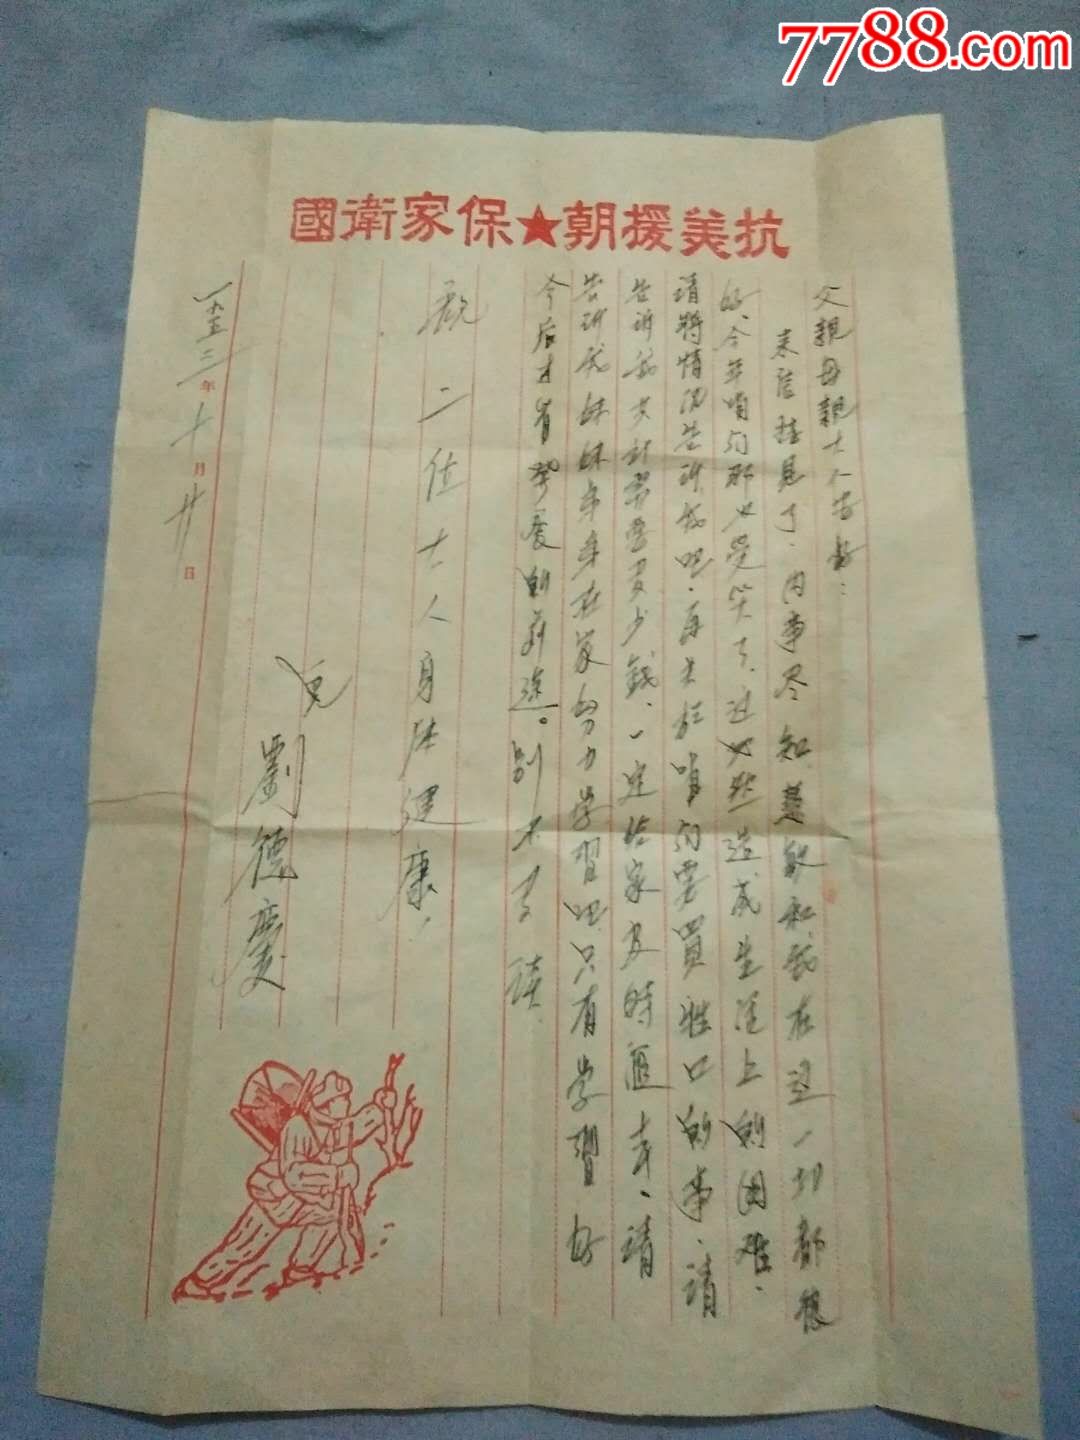 7788.com
抗美援朝★保家衛國
父親母親大人安好：
来信接見了，内事尽知，慧敏和我在这一切都很
好、今年咱们那 受灾了，过 造成生活上的困难，
請将情况告訴我吧，再关於咱们要買牲口的事、請
告訴我共計需要多少錢、一定给家及時匯去、請
告訴我妹妹 在家努力学習吧只有学習好
今后才有 的前途。別不多談
祝二位大人身体健康，
兒
劉德慶
一九五三年十月廿日